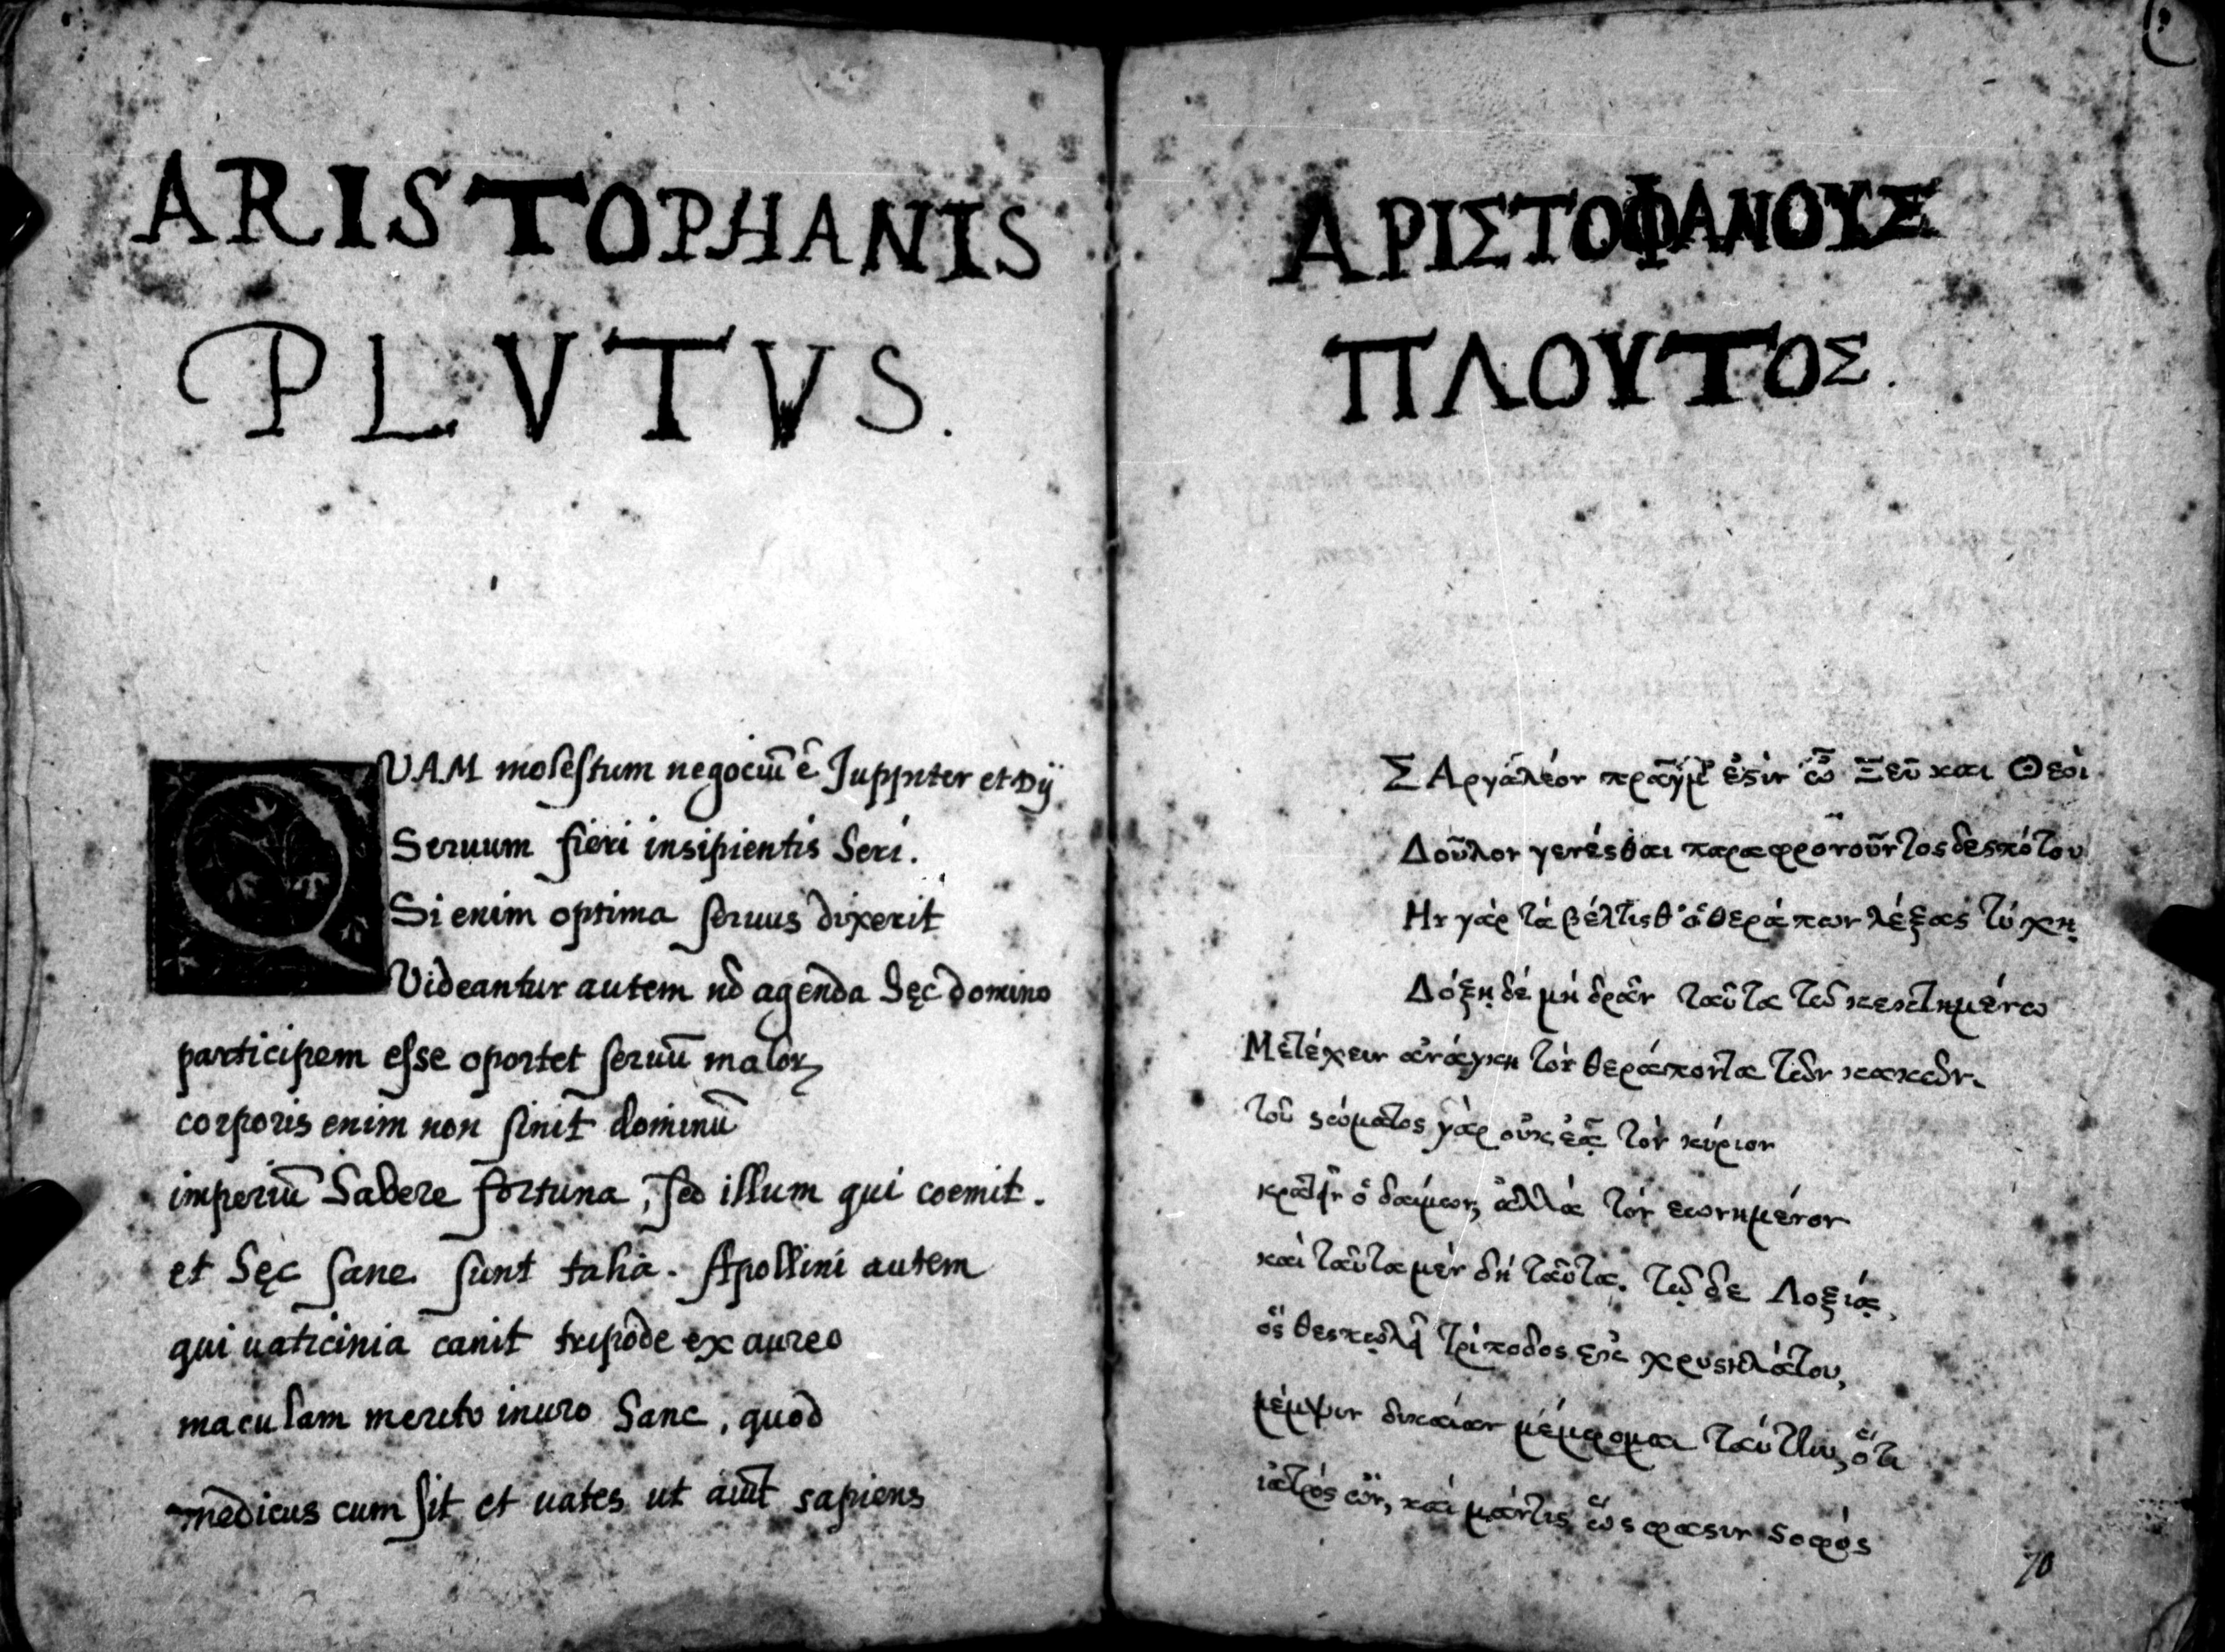 ARISTOPHANIS
PLVTVS.
QVAM molestum negociū ē Juppiter et Dij
Seruum fieri insipientis heri.
Si enim optima seruus dixerit
Videantur autem nō agenda hęc domino
participem esse oportet seruū maloꝝ
corporis enim non sinit dominū
imperiū habere fortuna, sed illum qui coemit.
et hęc sane sunt talia. Apollini autem
qui uaticinia canit tripode ex aureo
maculam merito inuro hanc, quod
medicus cum sit et uates ut aiūt sapiens
ΑΡΙΣΤΟΦΑΝΟΥΣ
ΠΛΟΥΤΟΣ.
ΣΑργάλέον πρᾶγμ' ἐςὶν ὦ Ξεῦ και Θεοὶ
Δοῦλον γενέσθαι παραφρονοῦντος δεσπότου
Ην γὰρ τὰ βέλτισθ' ὁ θεράπων λέξας τύχῃ
Δόξῃ δέ μή δρᾶν ταῦτα τῶ κεκτημένω
Μετέχειν ἀνάγκη τὸν θεράποντα τῶν κακῶν.
τοῦ σώματος γὰρ οὐκ ἐᾷ τὸν κύριον
κρατεῖν ὁ δαίμων, ἀλλὰ τόν εωνημένον
καὶ ταῦτα μὲν δή ταῦτα. τῷ δε Λοξίᾳ,
ὃς θεσπιῳδεῖ τρίποδος ἐκ χρυσηλάτου,
μέμψιν δικαίαν μέμφομαι ταύτην, ὅτι
ἰατρός ὢν, καί μάντις ὥς φασιν σοφός
70